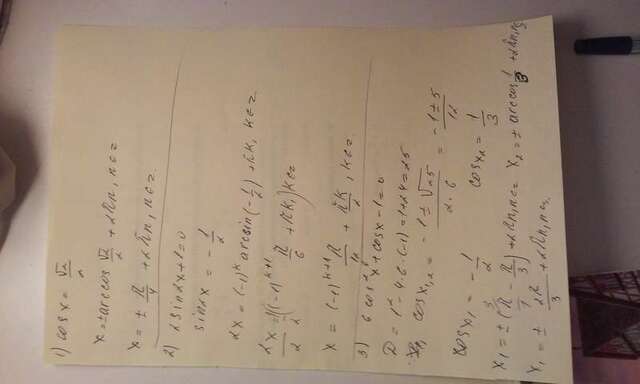 1) cos x = √2/2
x = ± arccos √2/2 + 2πn, n∈Z
x = ± π/4 + 2πn, n∈Z.
2) 2 sin 2x + 1 = 0
sin 2x = - 1/2
2x = (-1)^k arcsin(- 1/2) + πk, k∈Z
2x/2 = 1/2((-1)^(k+1) π/6 + πk,) k∈Z
x = (-1)^(k+1) π/12 + πk/2, k∈Z.
3) 6 cos² x + cos x - 1 = 0
D = 1² - 4·6·(-1) = 1 + 24 = 25
cos x₁,₂ = (-1 ± √25)/(2·6) = (-1 ± 5)/12
cos x₁ = - 1/2 cos x₂ = 1/3
x₁ = ± (π/1 - π/3) + 2πn, n∈Z x₂ = ± arccos 1/3 + 2πn, n∈Z
x₁ = ± 2π/3 + 2πn, n∈Z.